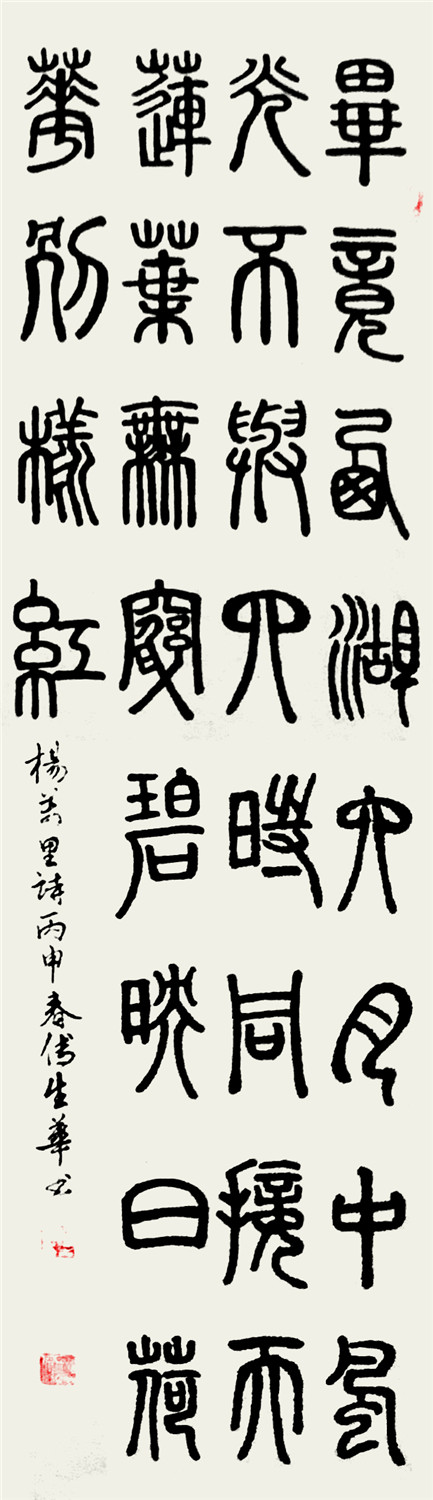 畢竟西湖六月中風
光不與四時同接天
蓮葉無窮碧映日荷
華別樣紅
楊萬里詩丙申春傅生華书